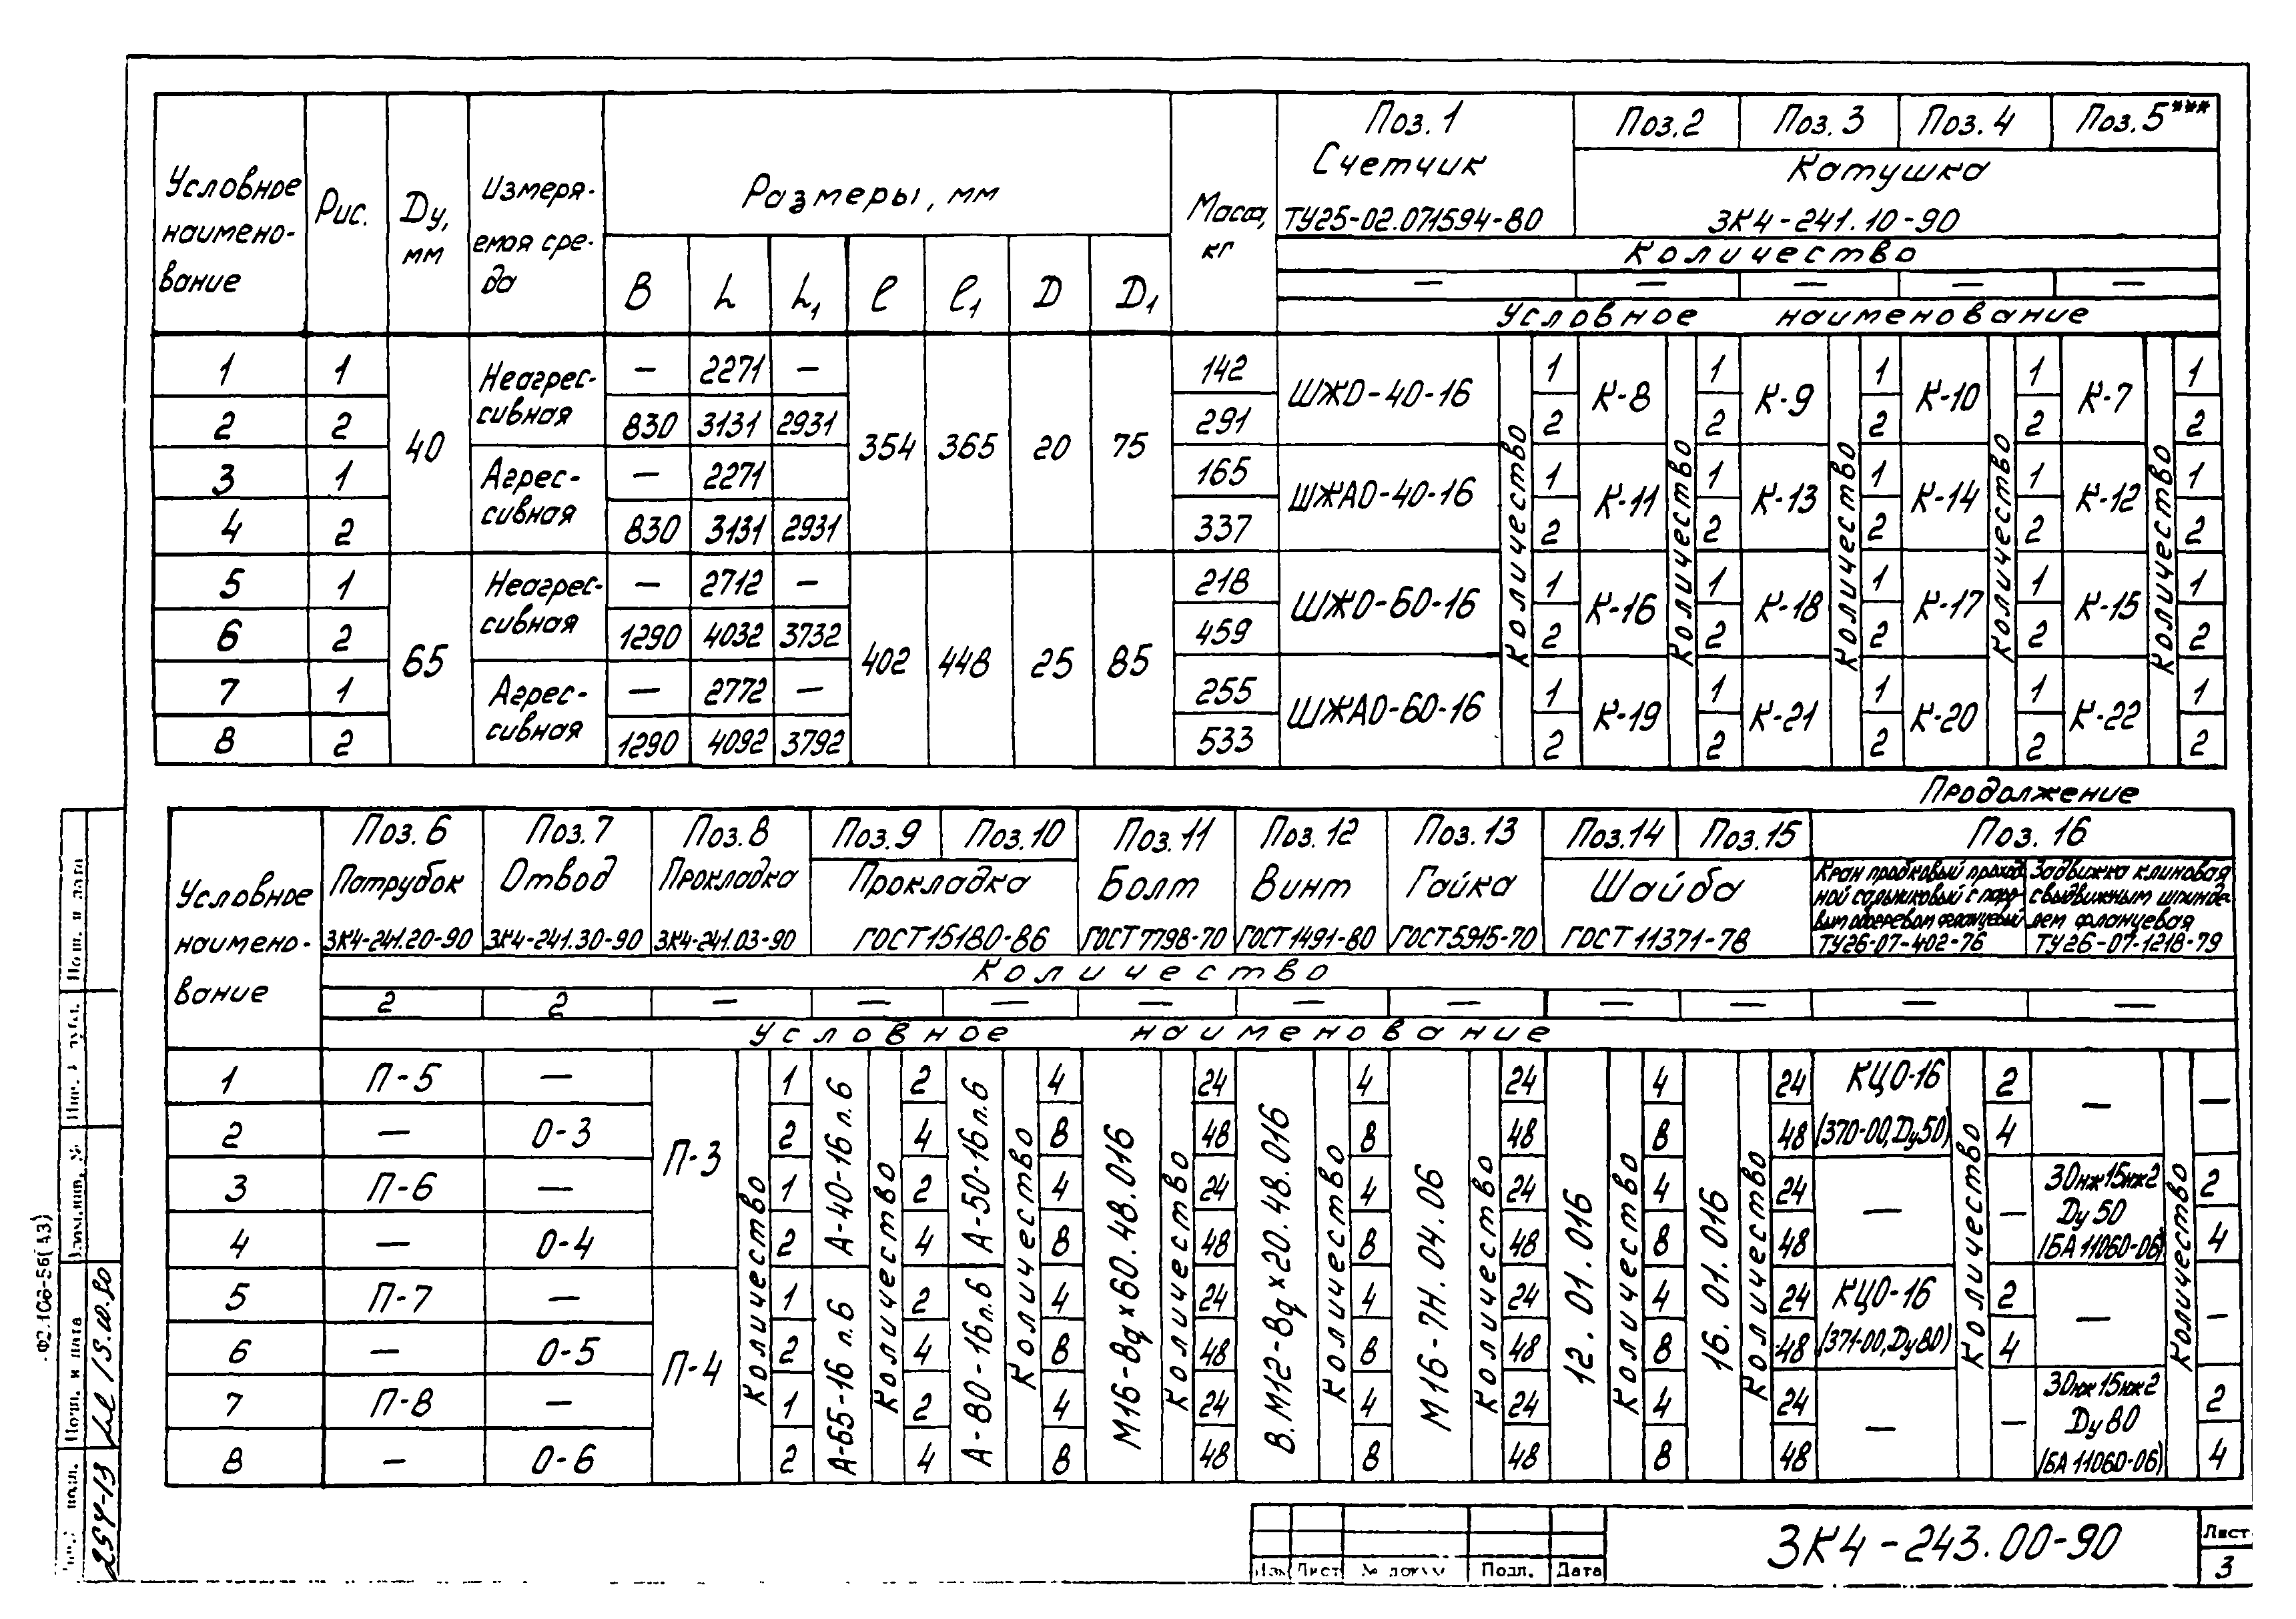 Условное наимено-вание Рис. Ду, мм Измеря-емая сре-да Размеры, мм Масса, кг Поз. 1 Поз. 2 Поз. 3 Поз. 4 Поз. 5***
Счетчик Катушка
ТУ25-02.071594-80 ЗК4-241.10-90
Количество
B L L₁ ℓ ℓ₁ D D₁ — — — — —
Условное наименование
1 1 40 Неагрес-сивная — 2271 — 354 365 20 75 142 ШЖО-40-16 Количество 1 К-8 Количество 1 К-9 Количество 1 К-10 Количество 1 К-7 Количество 1
2 2 830 3131 2931 291 2 2 2 2 2
3 1 Агрес-сивная — 2271 165 ШЖАО-40-16 1 К-11 1 К-13 1 К-14 1 К-12 1
4 2 830 3131 2931 337 2 2 2 2 2
5 1 65 Неагрес-сивная — 2712 — 402 448 25 85 218 ШЖО-60-16 1 К-16 1 К-18 1 К-17 1 К-15 1
6 2 1290 4032 3732 459 2 2 2 2 2
7 1 Агрес-сивная — 2772 — 255 ШЖАО-60-16 1 К-19 1 К-21 1 К-20 1 К-22 1
8 2 1290 4092 3792 533 2 2 2 2 2
Продолжение
Условное наимено-вание Поз. 6 Поз. 7 Поз. 8 Поз. 9 Поз. 10 Поз. 11 Поз. 12 Поз. 13 Поз. 14 Поз. 15 Поз. 16
Патрубок Отвод Прокладка Прокладка Болт Винт Гайка Шайба
Кран пробковый проход-ной сальниковый с паро-вым обогревом фланцевый
Задвижка клиновая с выдвижным шпинде-лем фланцевая
ЗК4-241.20-90 ЗК4-241.30-90 ЗК4-241.03-90 ГОСТ 15180-86 ГОСТ 7798-70 ГОСТ 1491-80 ГОСТ 5915-70 ГОСТ 11371-78 ТУ26-07-402-76 ТУ26-07-1218-79
Количество
2 2 — — — — — — — — — —
Условное наименование
1 П-5 — П-3 Количество 1 А-40-16 п.б Количество 2 А-50-16 п.б Количество 4 М16-8g×60.48.016 Количество 24 В.М12-8g×20.48.016 Количество 4 М16-7Н.04.06 Количество 24 12.01.016 Количество 4 16.01.016 Количество 24 КЦО-16 Количество 2 — Количество —
2 — О-3 2 4 8 48 8 48 8 48 (370-00, Ду50) 4
3 П-6 — 1 2 4 24 4 24 4 24 — — 30нж15нж2 2
4 — О-4 2 4 8 48 8 48 8 48 Ду 50 (БА 11060-06) 4
5 П-7 — П-4 1 А-65-16 п.б 2 А-80-16 п.б 4 24 4 24 4 24 КЦО-16 2 — —
6 — О-5 2 4 8 48 8 48 8 48 (371-00, Ду80) 4
7 П-8 — 1 2 4 24 4 24 4 24 — — 30нж15нж2 2
8 — О-6 2 4 8 48 8 48 8 48 Ду 80 (БА 11060-06) 4
Ф2.106-56(А3)
Подп. и дата
Взам. инв. №
Подп. и дата
254-13
Изм Лист № докум Подп. Дата
ЗК4-243.00-90
Лист
3